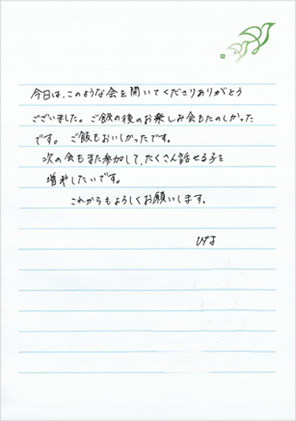 今日は、このような会を開いてくださりありがとう
ございました。ご飯の後のお楽しみ会もたのしかった
です。ご飯もおいしかったです。
次の会もまた参加して、たくさん話せる子を
増やしたいです。
これからもよろしくお願いします。